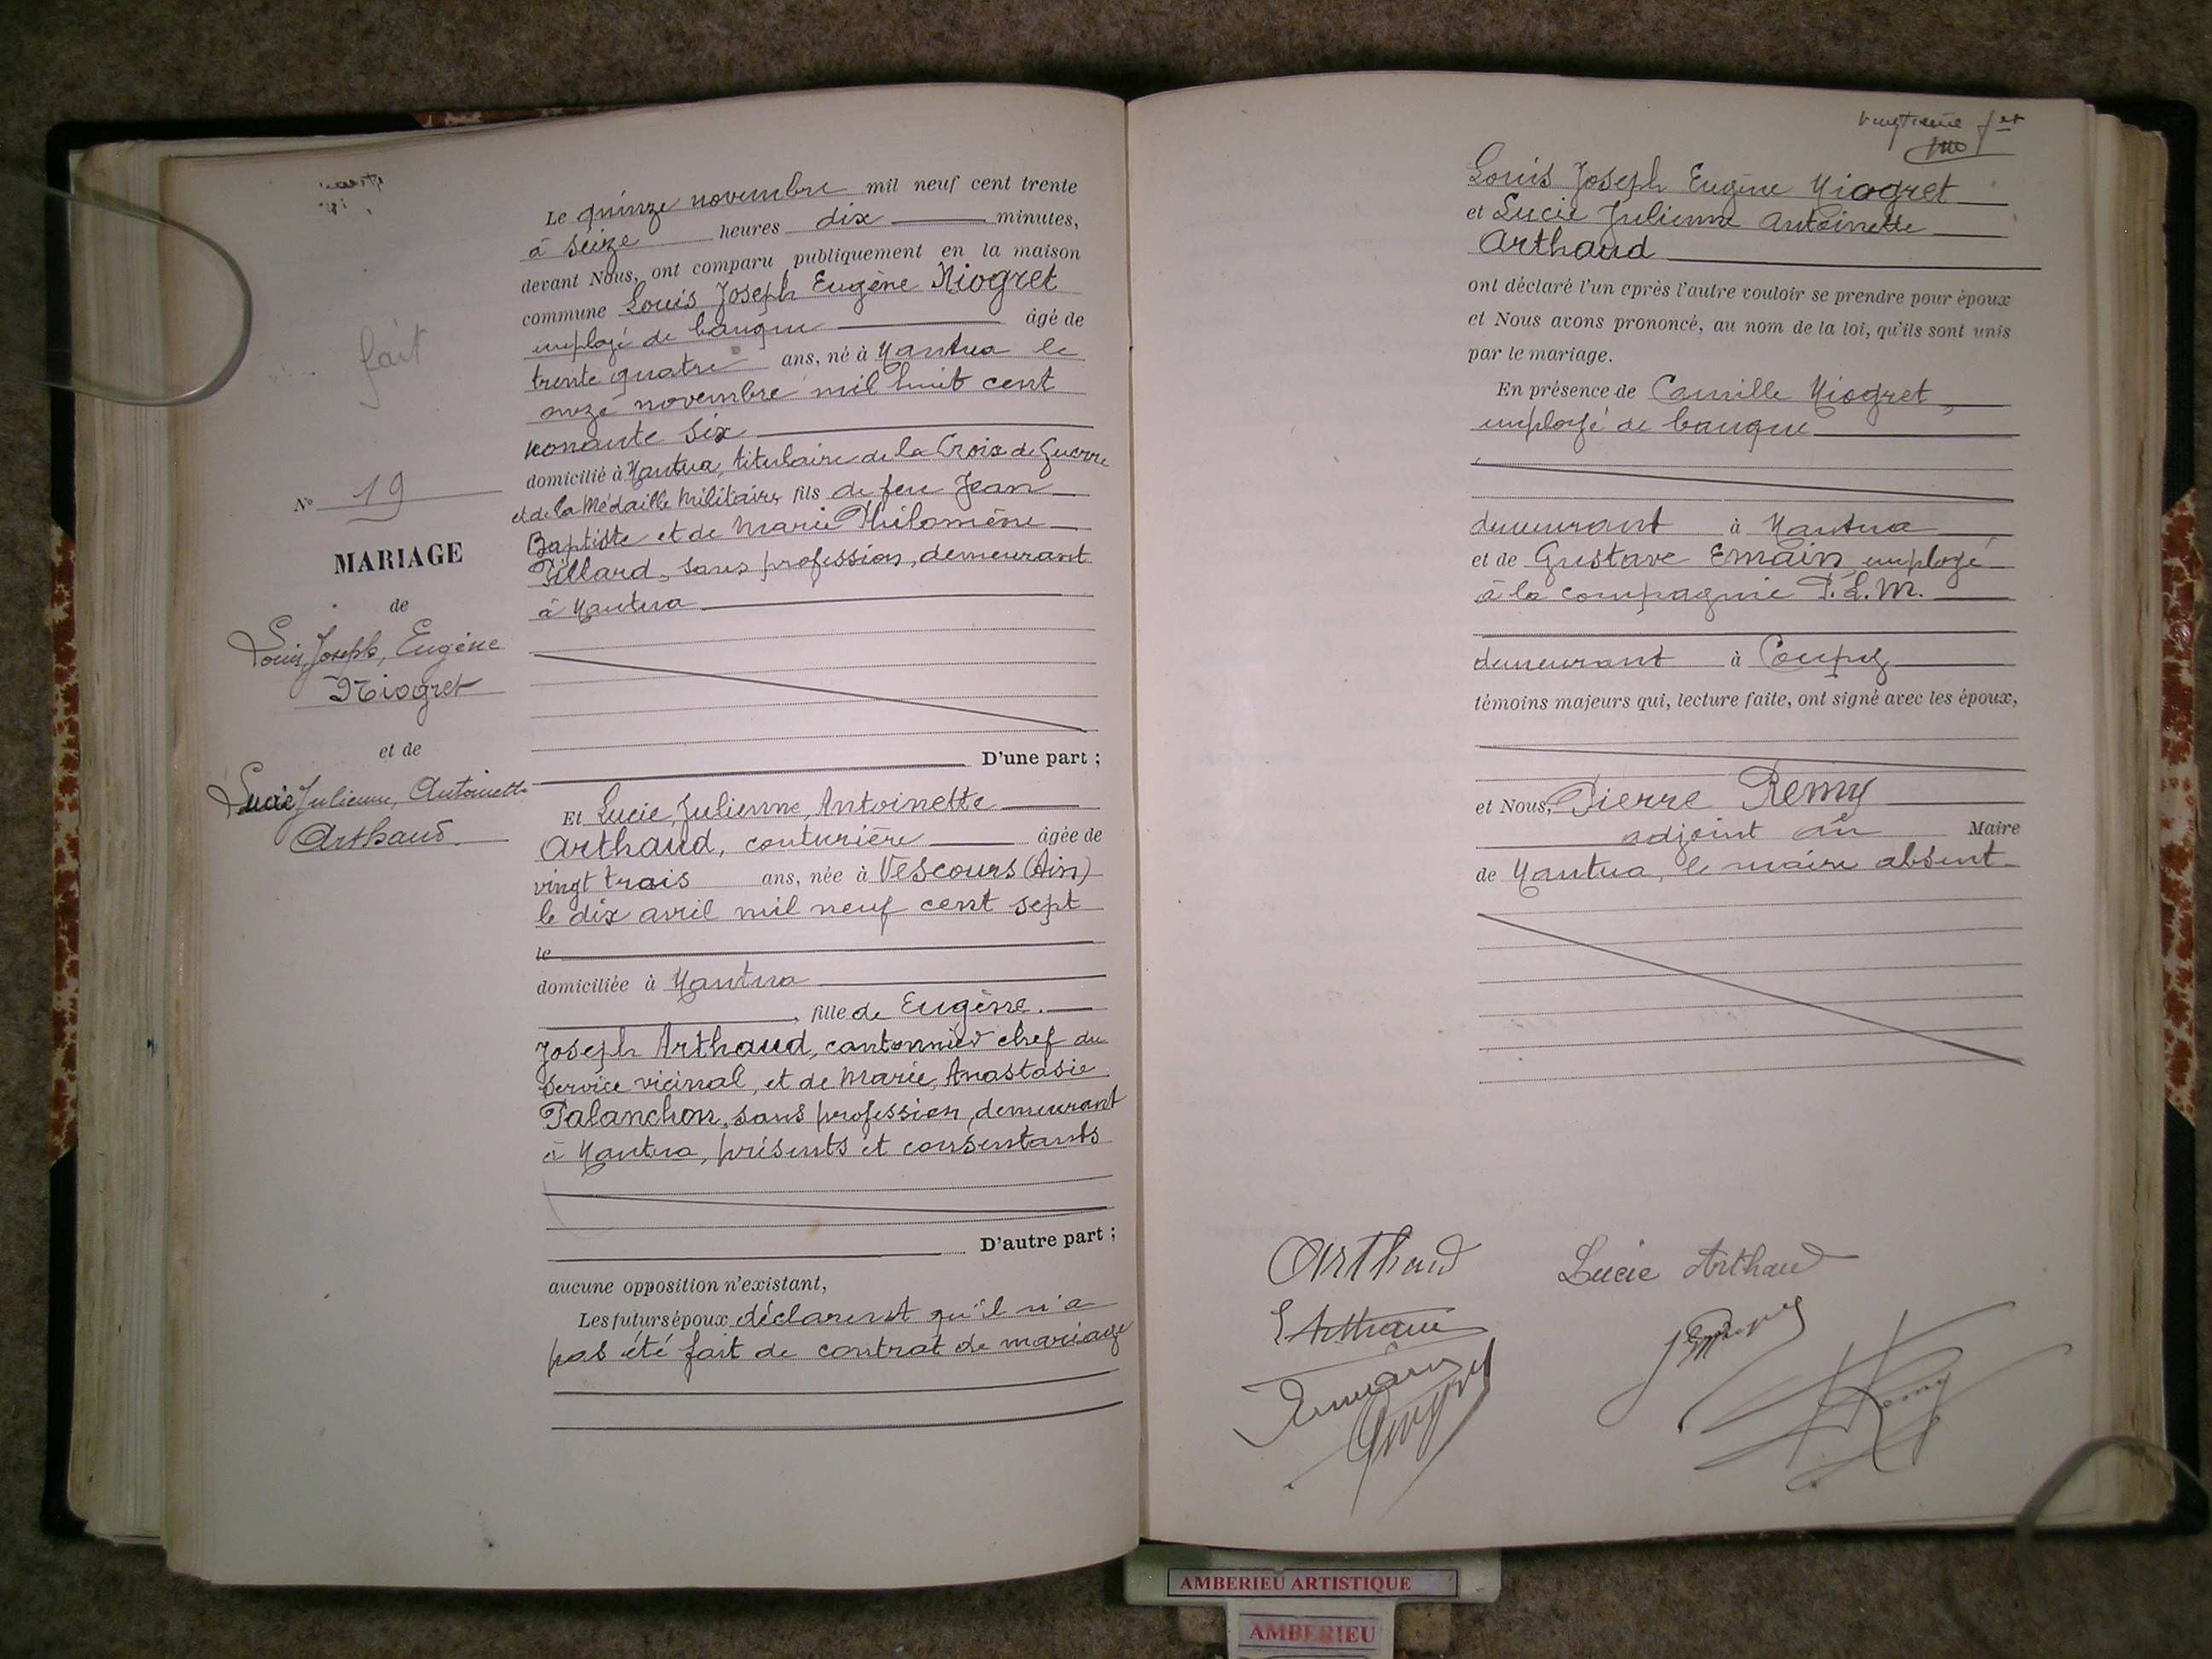 fait
N° 19
MARIAGE
de
Louis, Joseph, Eugène
Niogret
et de
Lucie Julienne, Antoinette
Arthaud
Le quinze novembre mil neuf cent trente
à seize heures dix minutes,
devant Nous, ont comparu publiquement en la maison
commune Louis Joseph Eugène Niogret
employé de banque âgé de
trente quatre ans, né à Nantua le
onze novembre mil huit cent
nonante six
domicilié à Nantua, titulaire de la Croix de Guerre
et de la Médaille Militaire, fils de feu Jean
Baptiste et de Marie Philomène
Pillard, sans profession, demeurant
à Nantua
D'une part ;
Et Lucie, Julienne, Antoinette
Arthaud, couturière âgée de
vingt trois ans, née à Vescours (Ain)
le dix avril mil neuf cent sept
le
domiciliée à Nantua
, fille de Eugène
Joseph Arthaud, cantonnier chef du
service vicinal, et de Marie, Anastasie
Palanchon, sans profession, demeurant
à Nantua, présents et consentants
D'autre part ;
aucune opposition n'existant,
Les futurs époux déclarent qu'il n'a
pas été fait de contrat de mariage
vingtième fet
Louis Joseph Eugène Niogret
et Lucie Julienne Antoinette
Arthaud
ont déclaré l'un après l'autre vouloir se prendre pour époux
et Nous avons prononcé, au nom de la loi, qu'ils sont unis
par le mariage.
En présence de Camille Niogret,
employé de banque
demeurant à Nantua
et de Gustave Emain, employé
à la compagnie P.L.M.
demeurant à Coupy
témoins majeurs qui, lecture faite, ont signé avec les époux,
et Nous, Pierre Remy
adjoint au Maire
de Nantua, le maire absent
Arthaud
Lucie Arthaud
E Arthaud
Remy
AMBERIEU ARTISTIQUE
AMBERIEU